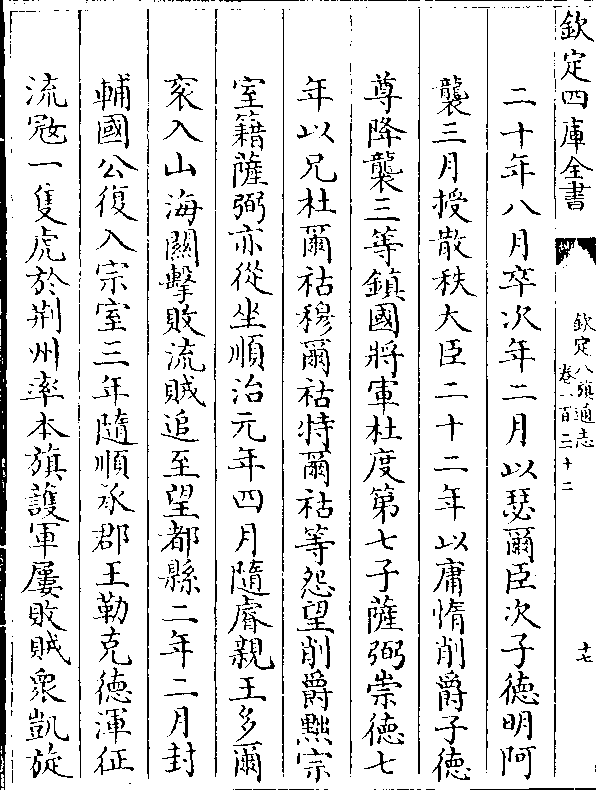 欽定四庫全書
欽定八旗通志
卷一百三十二
十七
二十年八月卒次年二月以瑟爾臣次子德明阿
襲三月授散秩大臣二十二年以庸惰削爵子德
尊降襲三等鎮國將軍杜度第七子薩弼崇德七
年以兄杜爾祜穆爾祜特爾祜等怨望削爵黜宗
室籍薩弼亦從坐順治元年四月隨睿親王多爾
衮入山海關擊敗流賊追至望都縣二年二月封
輔國公復入宗室三年隨順承郡王勒克德渾征
流冦一隻虎於荆州率本旗護軍屢敗賊衆凱旋